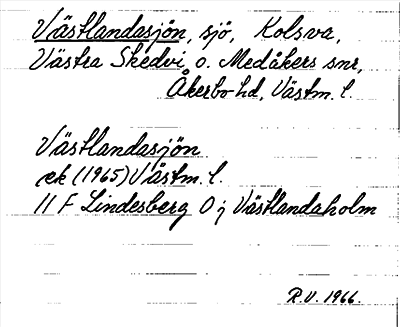 Västlandasjön, sjö, Kolsva,
Västra Skedvi o. Medåkers snr,
Åkerbo hd, Västm. l.
Västlandasjön
ek (1965) Västm. l.
11 F Lindesberg O; Västlandaholm
R.V. 1966.